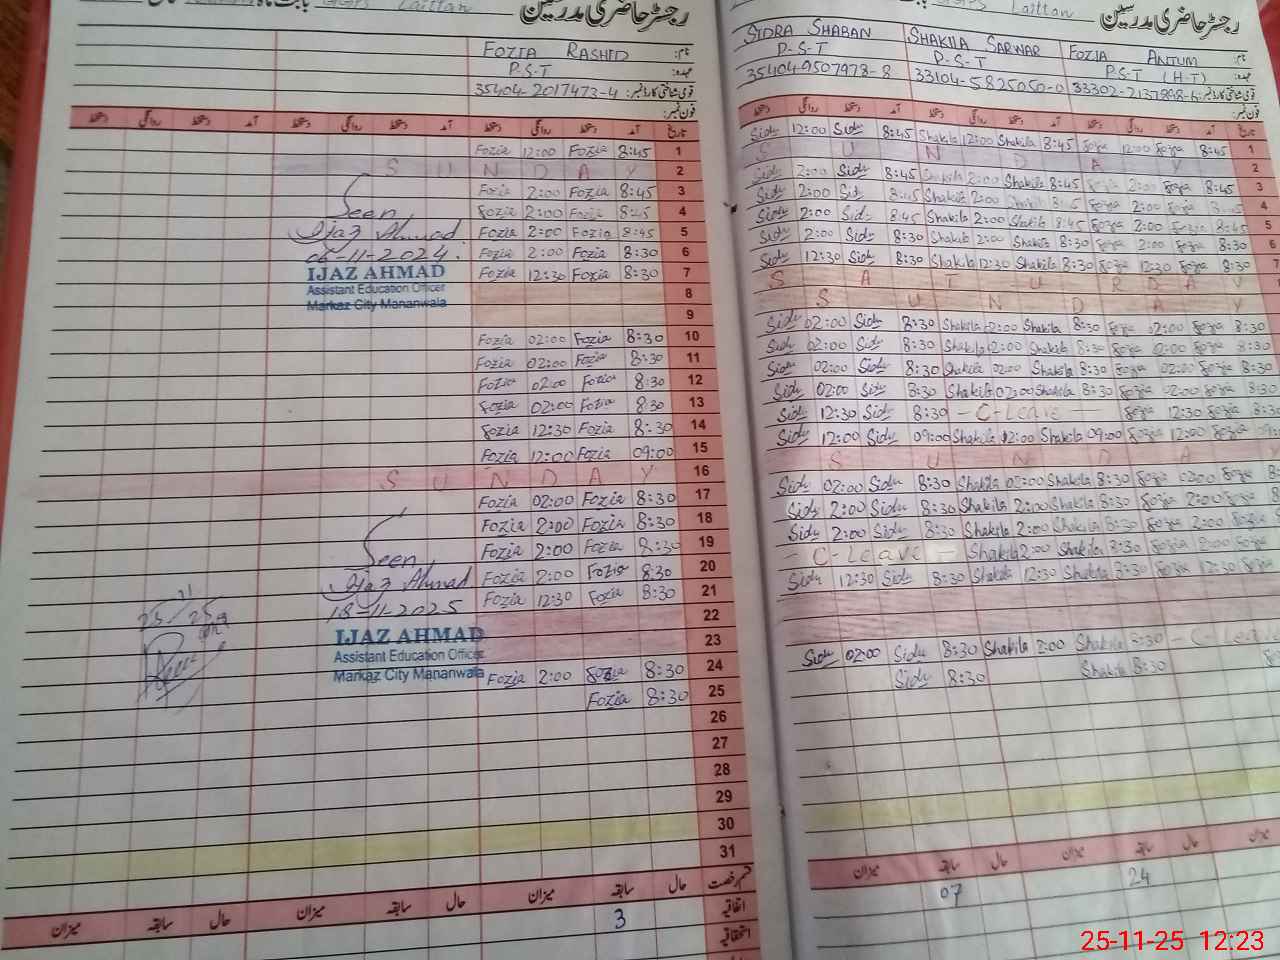 Laittan
رجسٹر حاضری مدرسین
FOZIA RASHID نام:
P.S.T عہدہ:
35404-2017473-4 قومی شناختی کارڈ نمبر:
فون نمبر:
تاریخ آمد دستخط روانگی دستخط آمد دستخط روانگی دستخط آمد دستخط روانگی دستخط
Fozia 12:00 Fozia 8:45 1
S U N D A Y 2
Fozia 2:00 Fozia 8:45 3
Fozia 2:00 Fozia 8:45 4
Fozia 2:00 Fozia 8:45 5
Fozia 2:00 Fozia 8:30 6
Fozia 12:30 Fozia 8:30 7
8
9
Fozia 02:00 Fozia 8:30 10
Fozia 02:00 Fozia 8:30 11
Fozia 02:00 Fozia 8:30 12
Fozia 02:00 Fozia 8:30 13
Fozia 12:30 Fozia 8:30 14
Fozia 12:00 Fozia 09:00 15
S U N D A Y 16
Fozia 02:00 Fozia 8:30 17
Fozia 2:00 Fozia 8:30 18
Fozia 2:00 Fozia 8:30 19
Fozia 2:00 Fozia 8:30 20
Fozia 12:30 Fozia 8:30 21
22
23
Fozia 2:00 Fozia 8:30 24
Fozia 8:30 25
26
27
28
29
30
31
Seen
Ijaz Ahmad
06-11-2024.
IJAZ AHMAD
Assistant Education Officer
Markaz City Mananwala
Seen
Ijaz Ahmad
18-11-2025
IJAZ AHMAD
Assistant Education Officer
Markaz City Mananwala
25/11/25
قسم رخصت حال سابقہ میزان حال سابقہ میزان حال سابقہ میزان
اتفاقیہ 3
استحقاقیہ
Laittan
رجسٹر حاضری مدرسین
SIDRA SHABAN SHAKILA SARWAR FOZIA ANJUM نام:
P-S-T P-S-T P.S.T (H-T) عہدہ:
35404-9507978-8 33104-5825050-0 33302-2137898-4 قومی شناختی کارڈ نمبر:
فون نمبر:
تاریخ آمد دستخط روانگی دستخط آمد دستخط روانگی دستخط آمد دستخط روانگی دستخط
Sidu 12:00 Sidu 8:45 Shakila 12:00 Shakila 8:45 Fozia 12:00 Fozia 8:45 1
S U N D A Y 2
Sidu 2:00 Sidu 8:45 Shakila 2:00 Shakila 8:45 Fozia 2:00 Fozia 8:45 3
Sidu 2:00 Sidu 8:45 Shakila 2:00 Shakila 8:45 Fozia 2:00 Fozia 8:45 4
Sidu 2:00 Sidu 8:45 Shakila 2:00 Shakila 8:45 Fozia 2:00 Fozia 8:45 5
Sidu 2:00 Sidu 8:30 Shakila 2:00 Shakila 8:30 Fozia 2:00 Fozia 8:30 6
Sidu 12:30 Sidu 8:30 Shakila 12:30 Shakila 8:30 Fozia 12:30 Fozia 8:30 7
S A T U R D A Y
S U N D A Y
Sidu 02:00 Sidu 8:30 Shakila 02:00 Shakila 8:30 Fozia 02:00 Fozia 8:30
Sidu 02:00 Sidu 8:30 Shakila 02:00 Shakila 8:30 Fozia 02:00 Fozia 8:30
Sidu 02:00 Sidu 8:30 Shakila 02:00 Shakila 8:30 Fozia 02:00 Fozia 8:30
Sidu 02:00 Sidu 8:30 Shakila 02:00 Shakila 8:30 Fozia 02:00 Fozia 8:30
Sidu 12:30 Sidu 8:30 - C-Leave - Fozia 12:30 Fozia 8:30
Sidu 12:00 Sidu 09:00 Shakila 12:00 Shakila 09:00 Fozia 12:00 Fozia
S U N D A Y
Sidu 02:00 Sidu 8:30 Shakila 02:00 Shakila 8:30 Fozia 02:00 Fozia 8:30
Sidu 2:00 Sidu 8:30 Shakila 2:00 Shakila 8:30 Fozia 2:00 Fozia
Sidu 2:00 Sidu 8:30 Shakila 2:00 Shakila 8:30 Fozia 2:00 Fozia
- C-Leave - Shakila 2:00 Shakila 8:30 Fozia 2:00 Fozia
Sidu 12:30 Sidu 8:30 Shakila 12:30 Shakila 8:30 Fozia 12:30 Fozia
Sidu 02:00 Sidu 8:30 Shakila 2:00 Shakila 8:30 - C-Leave
Sidu 8:30 Shakila 8:30
حال سابقہ میزان حال سابقہ میزان
07 24
25-11-25 12:23